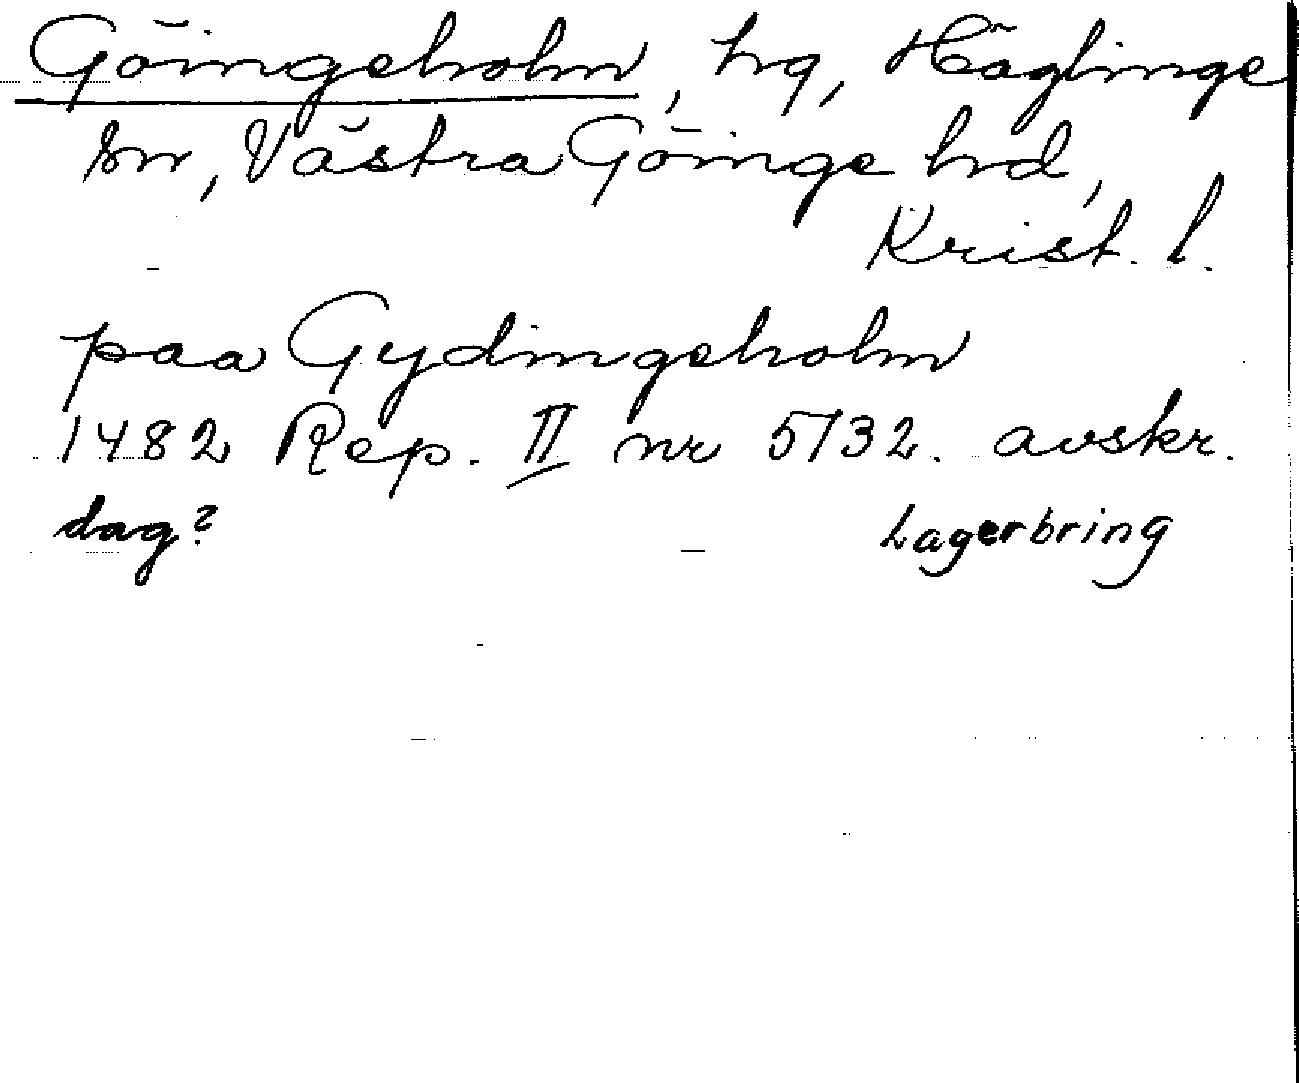 Göingeholm, hg, Häglinge
sn, Västra Göinge hd,
Krist. l.
paa Gydingeholm
1482 Rep. II nr 5732. avskr.
dag? Lagerbring